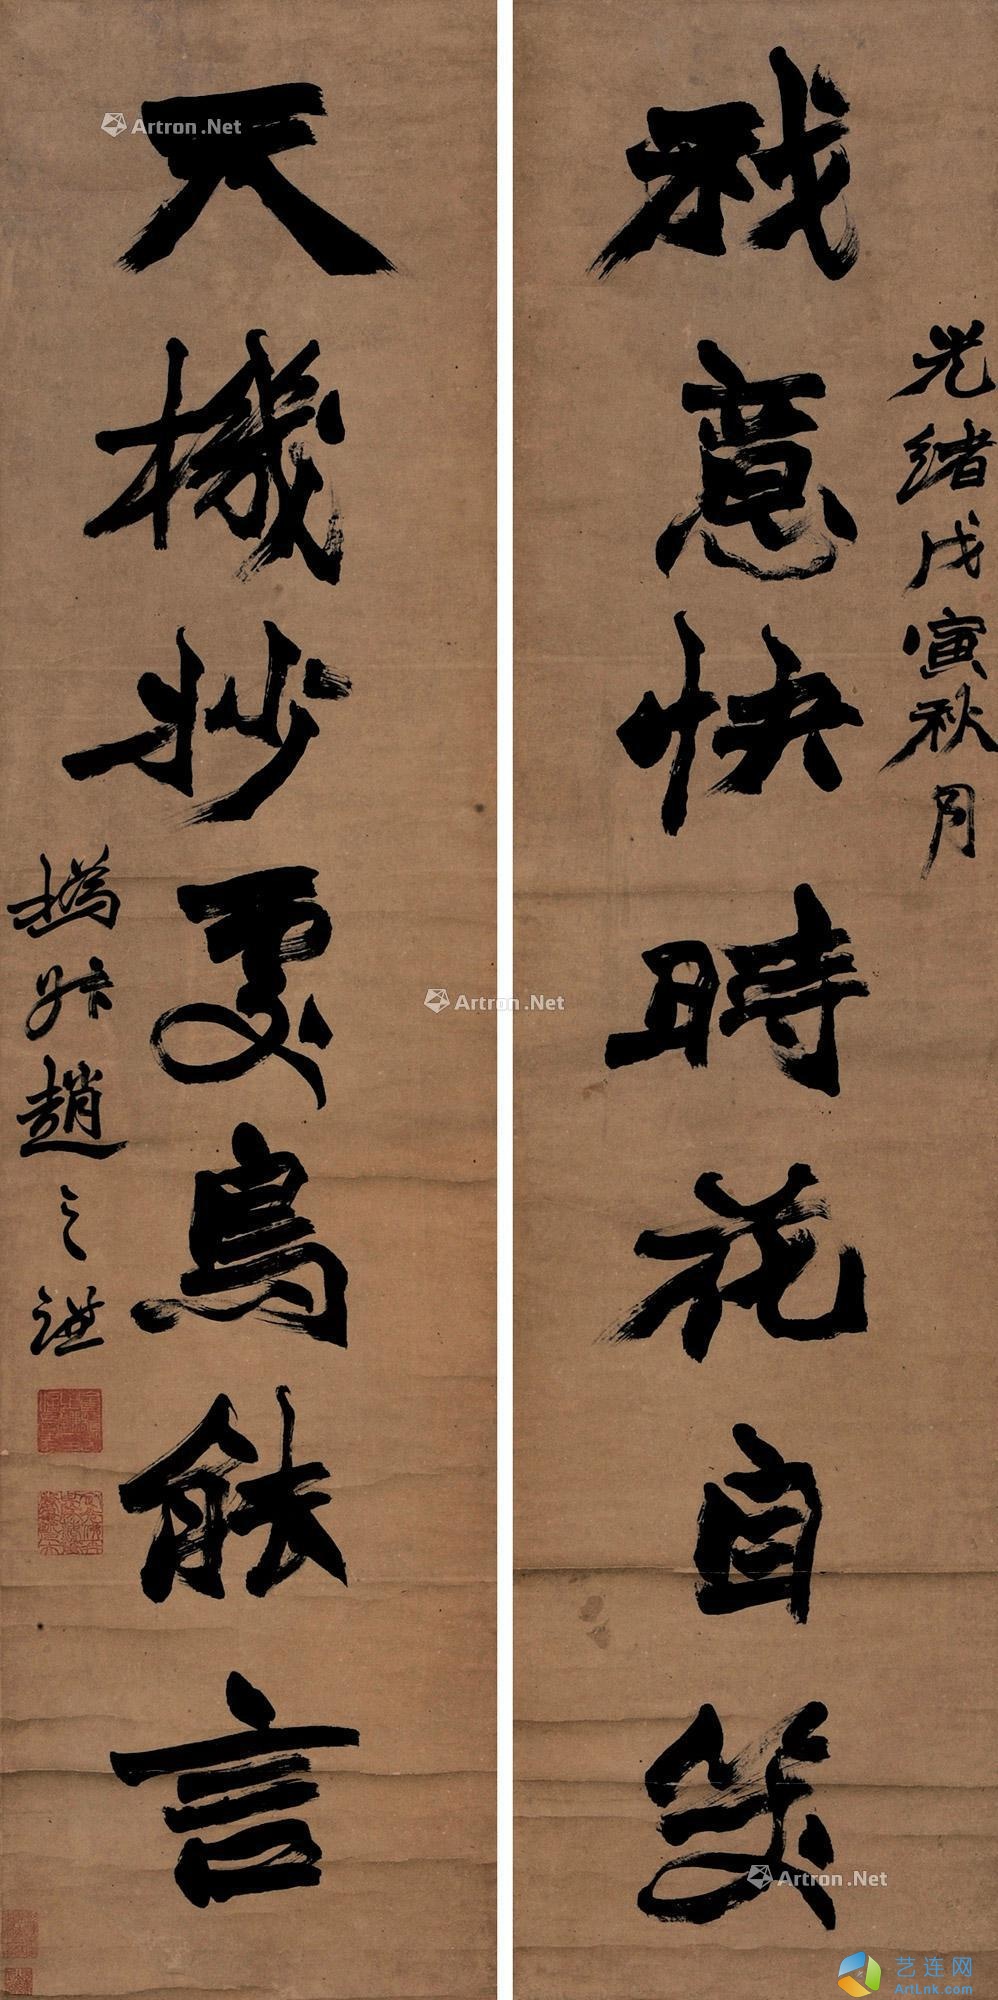 光緒戊寅秋月
我意快時花自笑
天機妙處鳥能言
撝叔趙之謙
Artron.Net
Artron.Net
Artron.Net
艺连网
ArtLnk.com